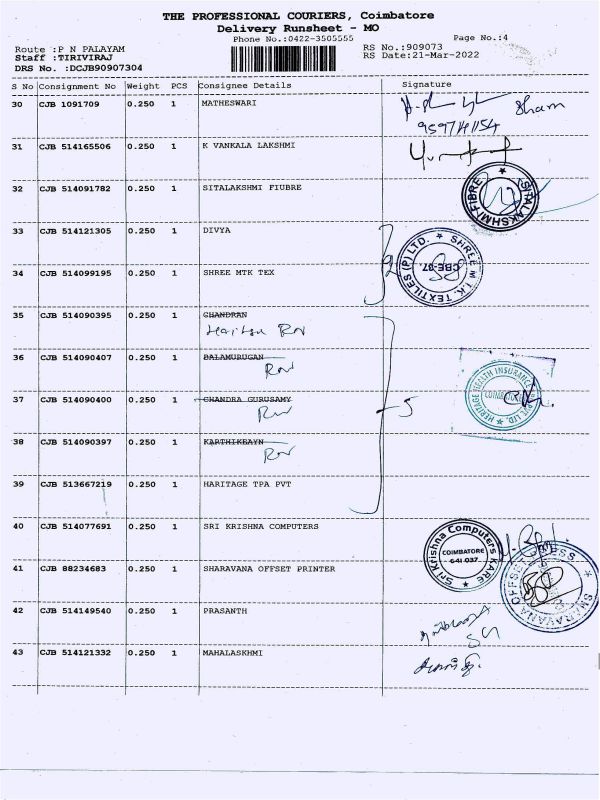 THE PROFESSIONAL COURIERS, Coimbatore
Delivery Runsheet - MO
Phone No.:0422-3505555
Page No.:4
Route :P N PALAYAM
RS No.:909073
Staff :TIRIVIRAJ
RS Date:21-Mar-2022
DRS No. :DCJB90907304
S No Consignment No Weight PCS Consignee Details Signature
30 CJB 1091709 0.250 1 MATHESWARI
Sham
9597141154
31 CJB 514165506 0.250 1 K VANKALA LAKSHMI
32 CJB 514091782 0.250 1 SITALAKSHMI FIUBRE
SITALAKSHMI FIBRE
33 CJB 514121305 0.250 1 DIVYA
2
SHREE M.T.K. TEXTILES (P) LTD.
CBE-37.
34 CJB 514099195 0.250 1 SHREE MTK TEX
35 CJB 514090395 1 0.250 CHANDRAN
36 CJB 514090407 0.250 1 BALAMURUGAN
37 CJB 514090400 0.250 1 CHANDRA GURUSAMY
5
HERITAGE HEALTH INSURANCE PVT. LTD.
COIMBATORE
38 CJB 514090397 0.250 1 KARTHIKEAYN
39 CJB 513667219 0.250 1 HARITAGE TPA PVT
40 CJB 514077691 0.250 1 SRI KRISHNA COMPUTERS
Sri Krishna Computers Kare
COIMBATORE
641 037
41 CJB 88234683 0.250 1 SHARAVANA OFFSET PRINTER
42 CJB 514149540 0.250 1 PRASANTH
43 CJB 514121332 0.250 1 MAHALASKHMI